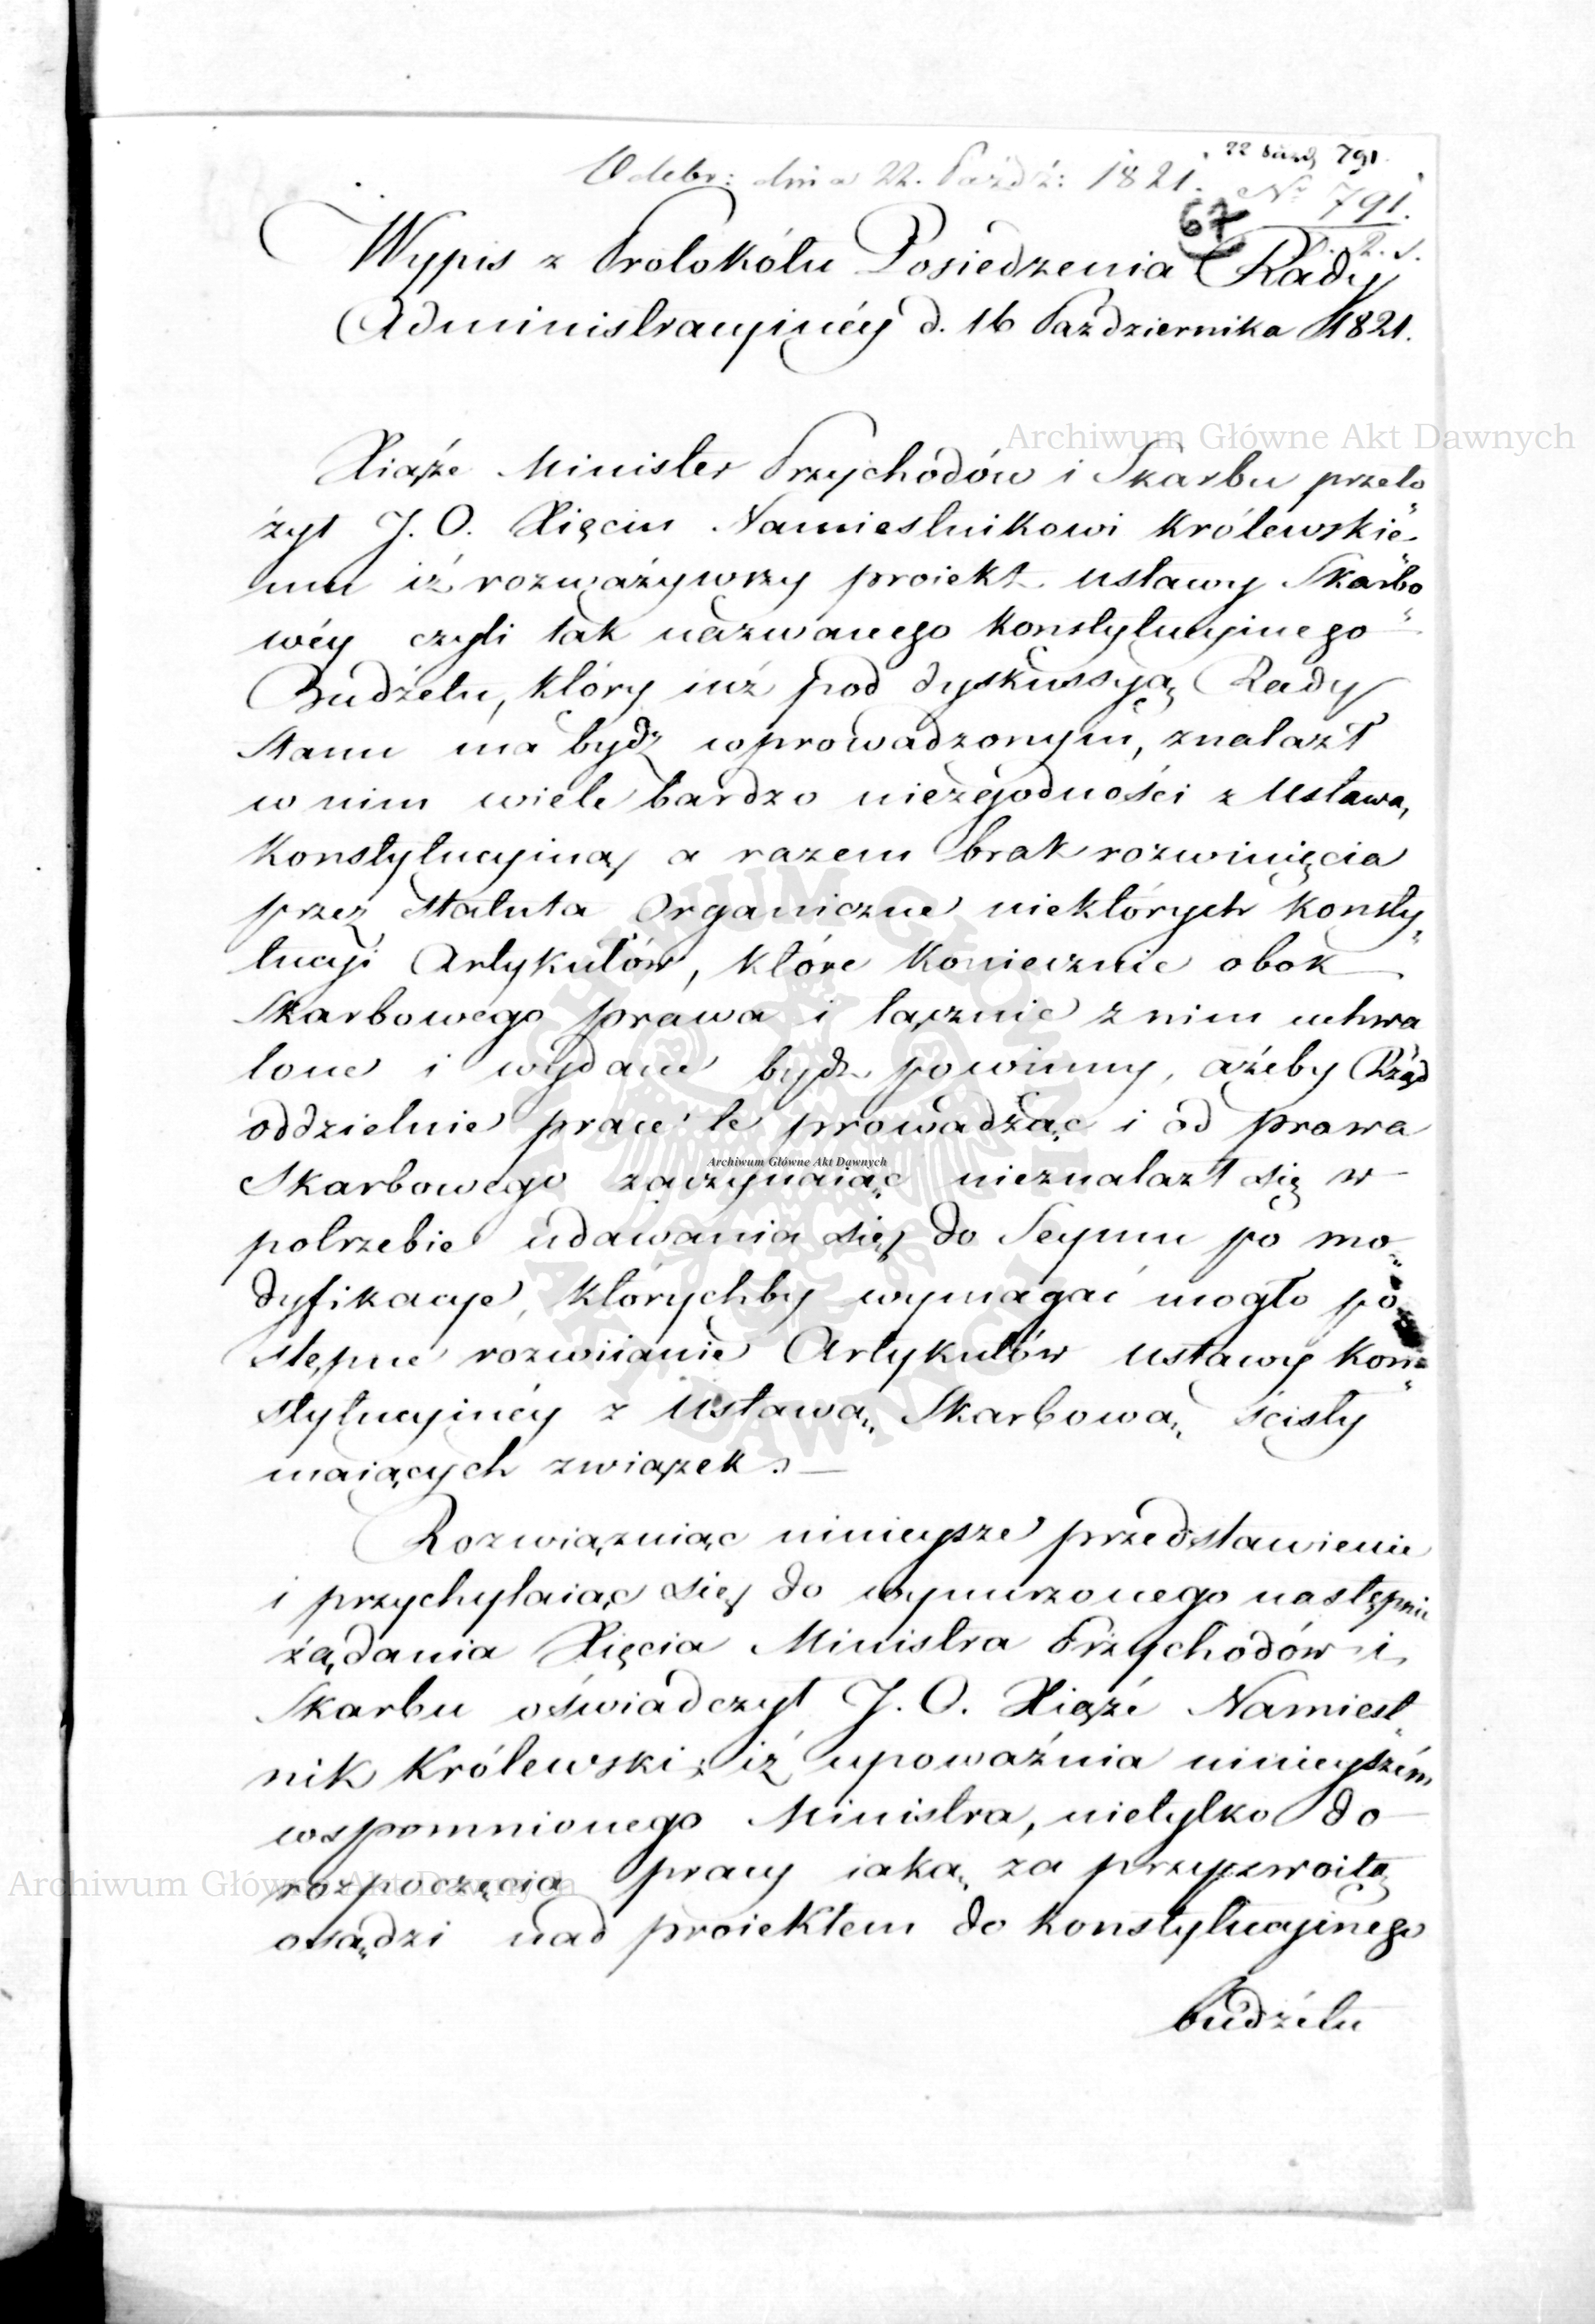 22 Paźdz 791.
Odebr: dnia 22. Paźdź: 1821. No 791.
67
Wypis z Protokółu Posiedzenia Rady
Administracyinéy d. 16 Pazdziernika 1821.
Archiwum Główne Akt Dawnych
Xiąże Minister Przychodów i Skarbu przeło
żył J. O. Xięciu Namiestnikowi Królewskie-
mu iż rozważywszy proiekt ustawy Skarbo
wéy czyli tak nazwanego Konstytucyinego
Budżetu, który iuż pod dyskussyą Rady
Stanu ma bydź wprowadzonym, znalazł
w nim wiele bardzo niezgodności z Ustawą
Konstytucyiną a razem brak rozwinięcia
przez Statuta Organiczne niektórych Konsty„
tucyi Artykułów, które Koniecznie obok
Skarbowego prawa i łącznie z nim uchwa
lone i wydane bydź powinny, ażeby Rząd
oddzielnie pracé te prowadząc i od prawa
Archiwum Główne Akt Dawnych
Skarbowego zaczynaiąc nieznalazł się w
potrzebie udawania się do Seymu po mo„
dyfikacye, którychby wymagać mogło po
stępne rozwiianie Artykułów ustawy Kon„
stytucyinéy z Ustawą Skarbową ścisły
maiących związek.
Rozwiązuiąc ninieysze przedstawienie
i przychylaiąc się do wynurzonego następnie
żądania Xięcia Ministra Przychodów i
Skarbu oświadczył J. O. Xiąże Namiest„
nik Królewski; iż upoważnia ninieyszém
wspomnionego Ministra, nietylko do
Archiwum Główne Akt Dawnych
rozpoczęcia pracy iaką za przyzwoitą
osądzi nad proiektem do Konstytucyinego
budżetu